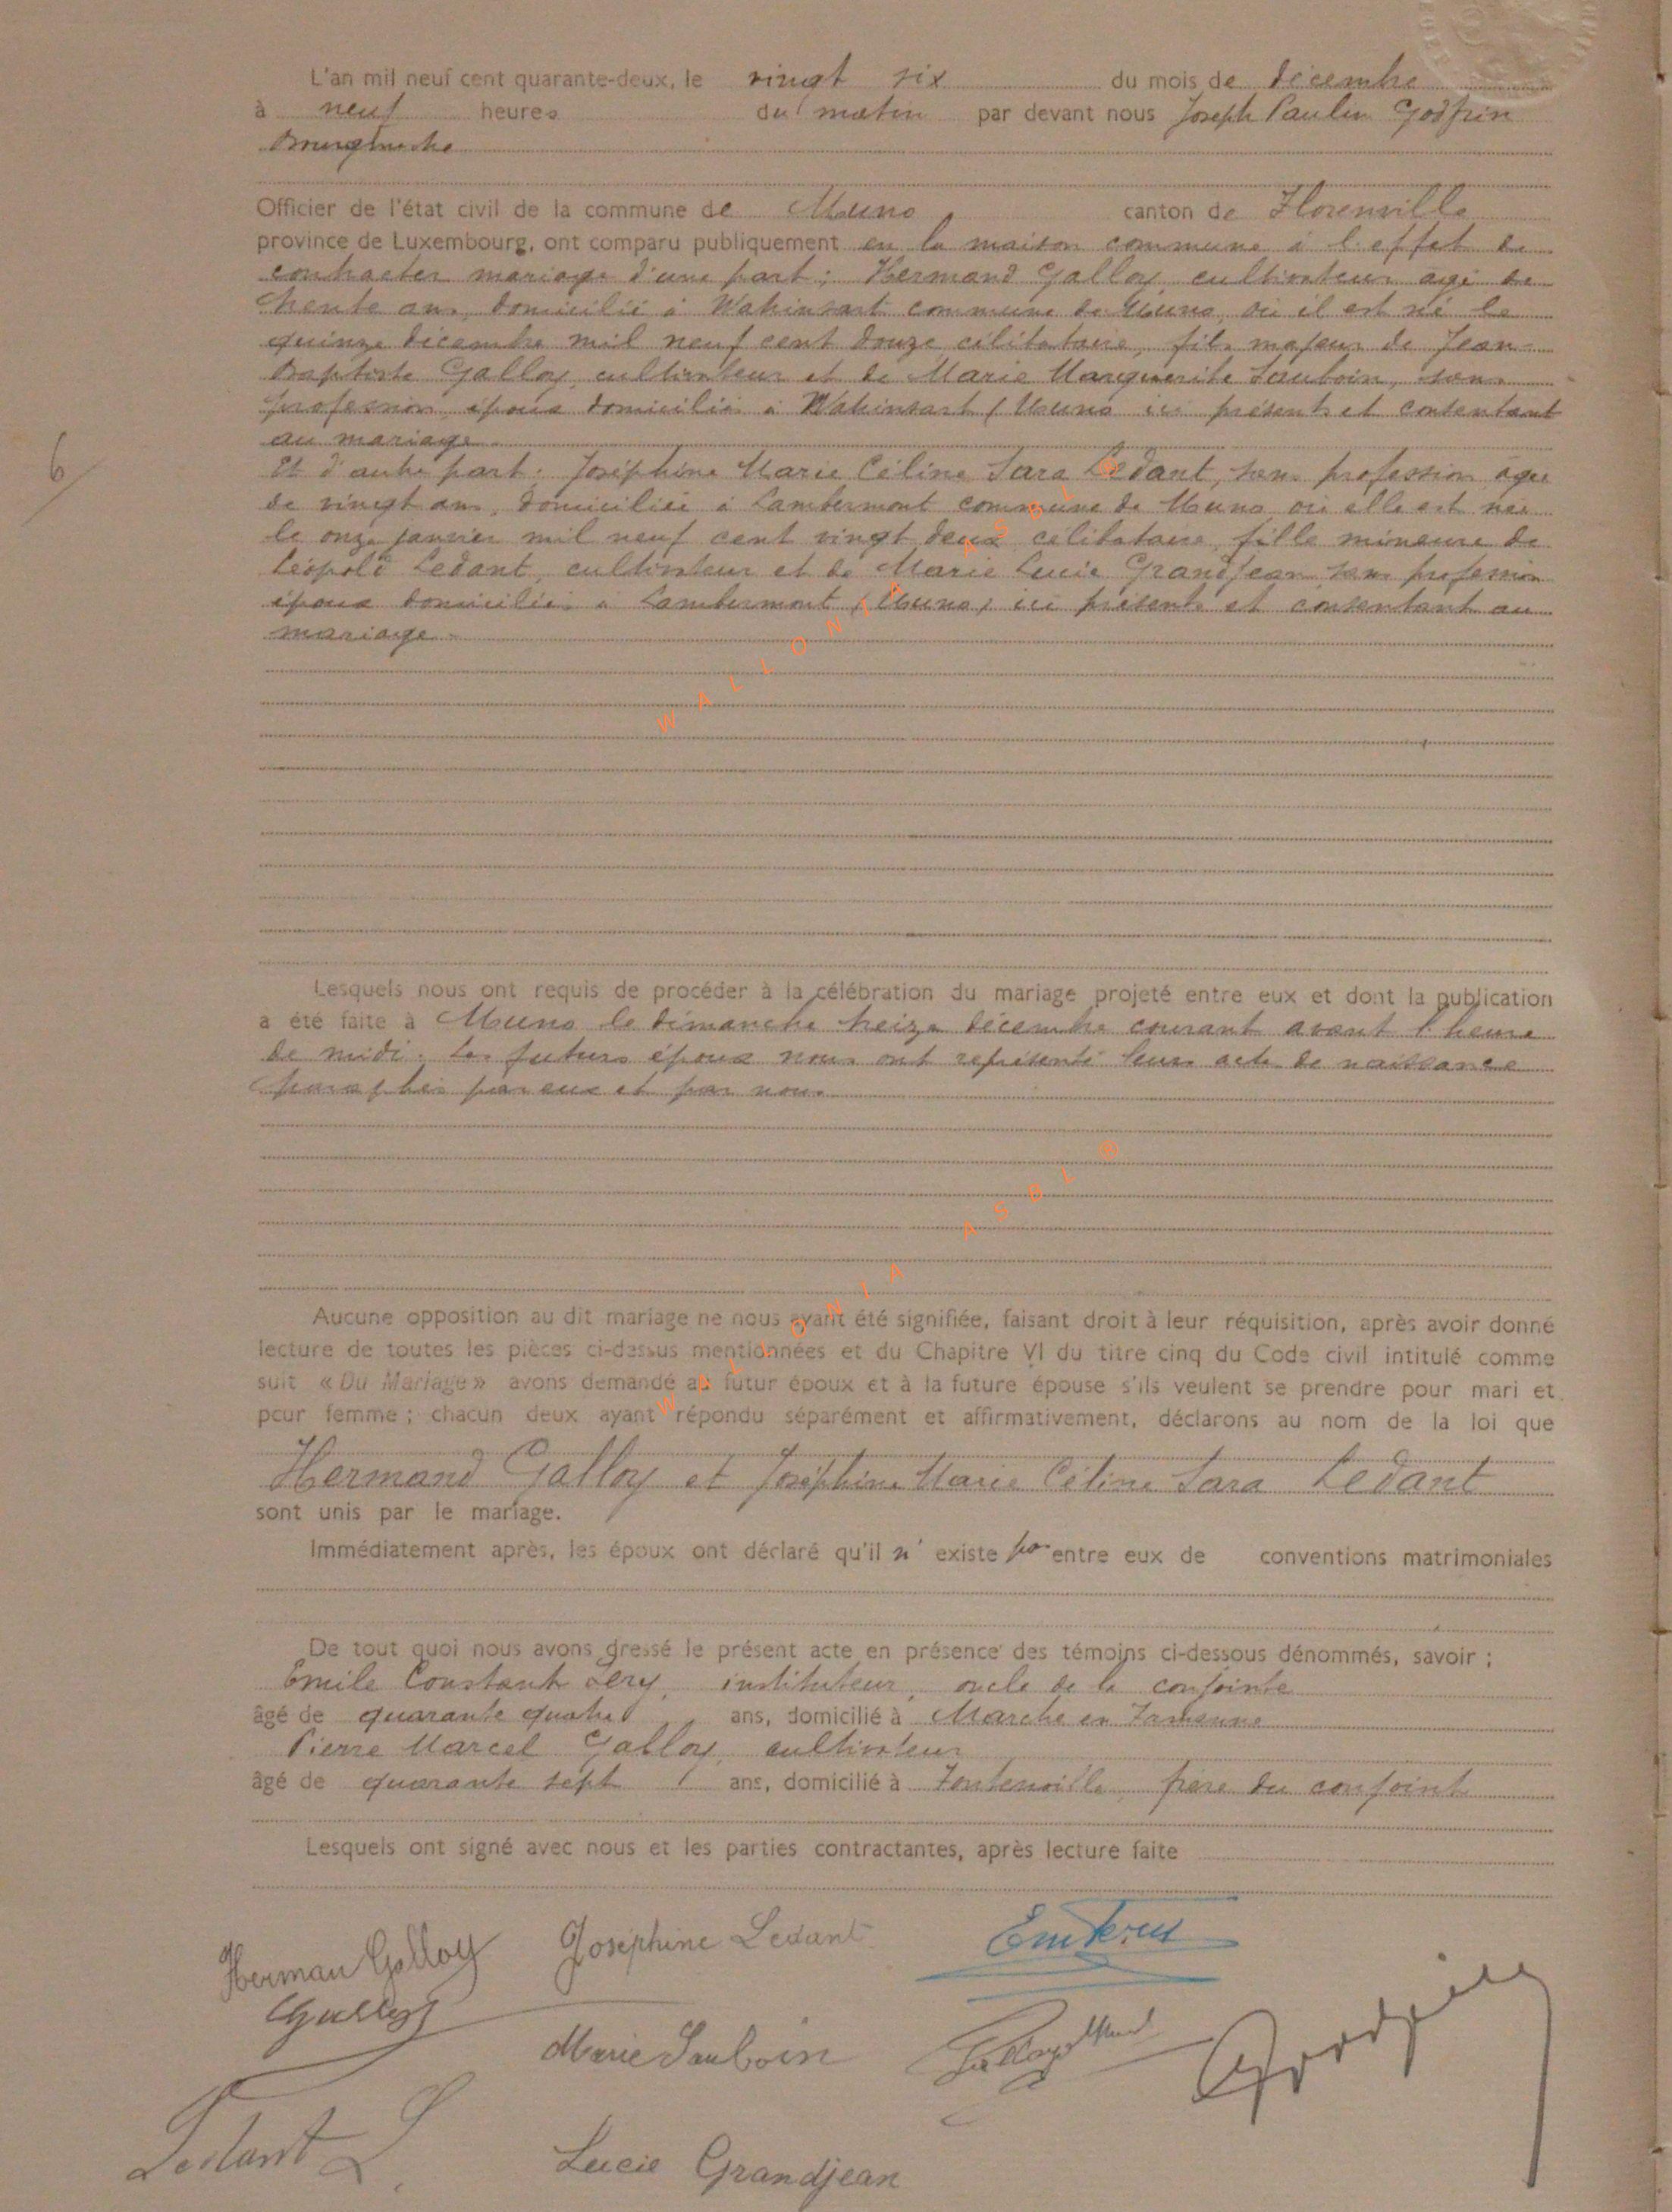 L'an mil neuf cent quarante-deux, le vingt six du mois de décembre
à neuf heures du matin par devant nous Joseph Paulin Godfrin
Bourgmestre
Officier de l'état civil de la commune de Muno canton de Florenville
province de Luxembourg, ont comparu publiquement en la maison commune à l'effet de
contracter mariage d'une part : Hermand Galloy cultivateur âgé de
trente ans, domicilié à Watrinsart commune de Muno, où il est né le
quinze décembre mil neuf cent douze célibataire, fils majeur de Jean-
Baptiste Galloy cultivateur et de Marie Marguerite Sauboin, sans
profession époux domiciliés à Watrinsart (Muno ici présents et consentant
au mariage.
Et d'autre part : Joséphine Marie Céline Sara Ledant, sans profession âgée
de vingt ans, domiciliée à Lambermont commune de Muno où elle est née
le onze janvier mil neuf cent vingt deux célibataire, fille mineure de
Léopold Ledant, cultivateur et de Marie Lucie Grandjean sans profession
époux domiciliés à Lambermont (Muno) ici présents et consentant au
mariage.
6
Lesquels nous ont requis de procéder à la célébration du mariage projeté entre eux et dont la publication
a été faite à Muno le dimanche treize décembre courant avant l'heure
de midi. Les futurs époux nous ont représenté leurs acte de naissance
paraphés par eux et par nous
Aucune opposition au dit mariage ne nous ayant été signifiée, faisant droit à leur réquisition, après avoir donné
lecture de toutes les pièces ci-dessus mentionnées et du Chapitre VI du titre cinq du Code civil intitulé comme
suit « Du Mariage » avons demandé au futur époux et à la future épouse s'ils veulent se prendre pour mari et
pour femme ; chacun deux ayant répondu séparément et affirmativement, déclarons au nom de la loi que
Hermand Galloy et Joséphine Marie Céline Sara Ledant
sont unis par le mariage.
Immédiatement après, les époux ont déclaré qu'il n' existe pas entre eux de conventions matrimoniales
De tout quoi nous avons dressé le présent acte en présence des témoins ci-dessous dénommés, savoir :
Emile Constant instituteur, oncle de la conjointe
âgé de quarante quatre ans, domicilié à Marche en Famenne
Pierre Marcel Galloy, cultivateur
âgé de quarante sept ans, domicilié à Fontenoille, frère du conjoint
Lesquels ont signé avec nous et les parties contractantes, après lecture faite
Herman Galloy Joséphine Ledant
Galloy
Marie Sauboin Galloy Godfrin
Ledant L
Lucie Grandjean
WALLONIA ASBL ®
WALLONIA ASBL ®